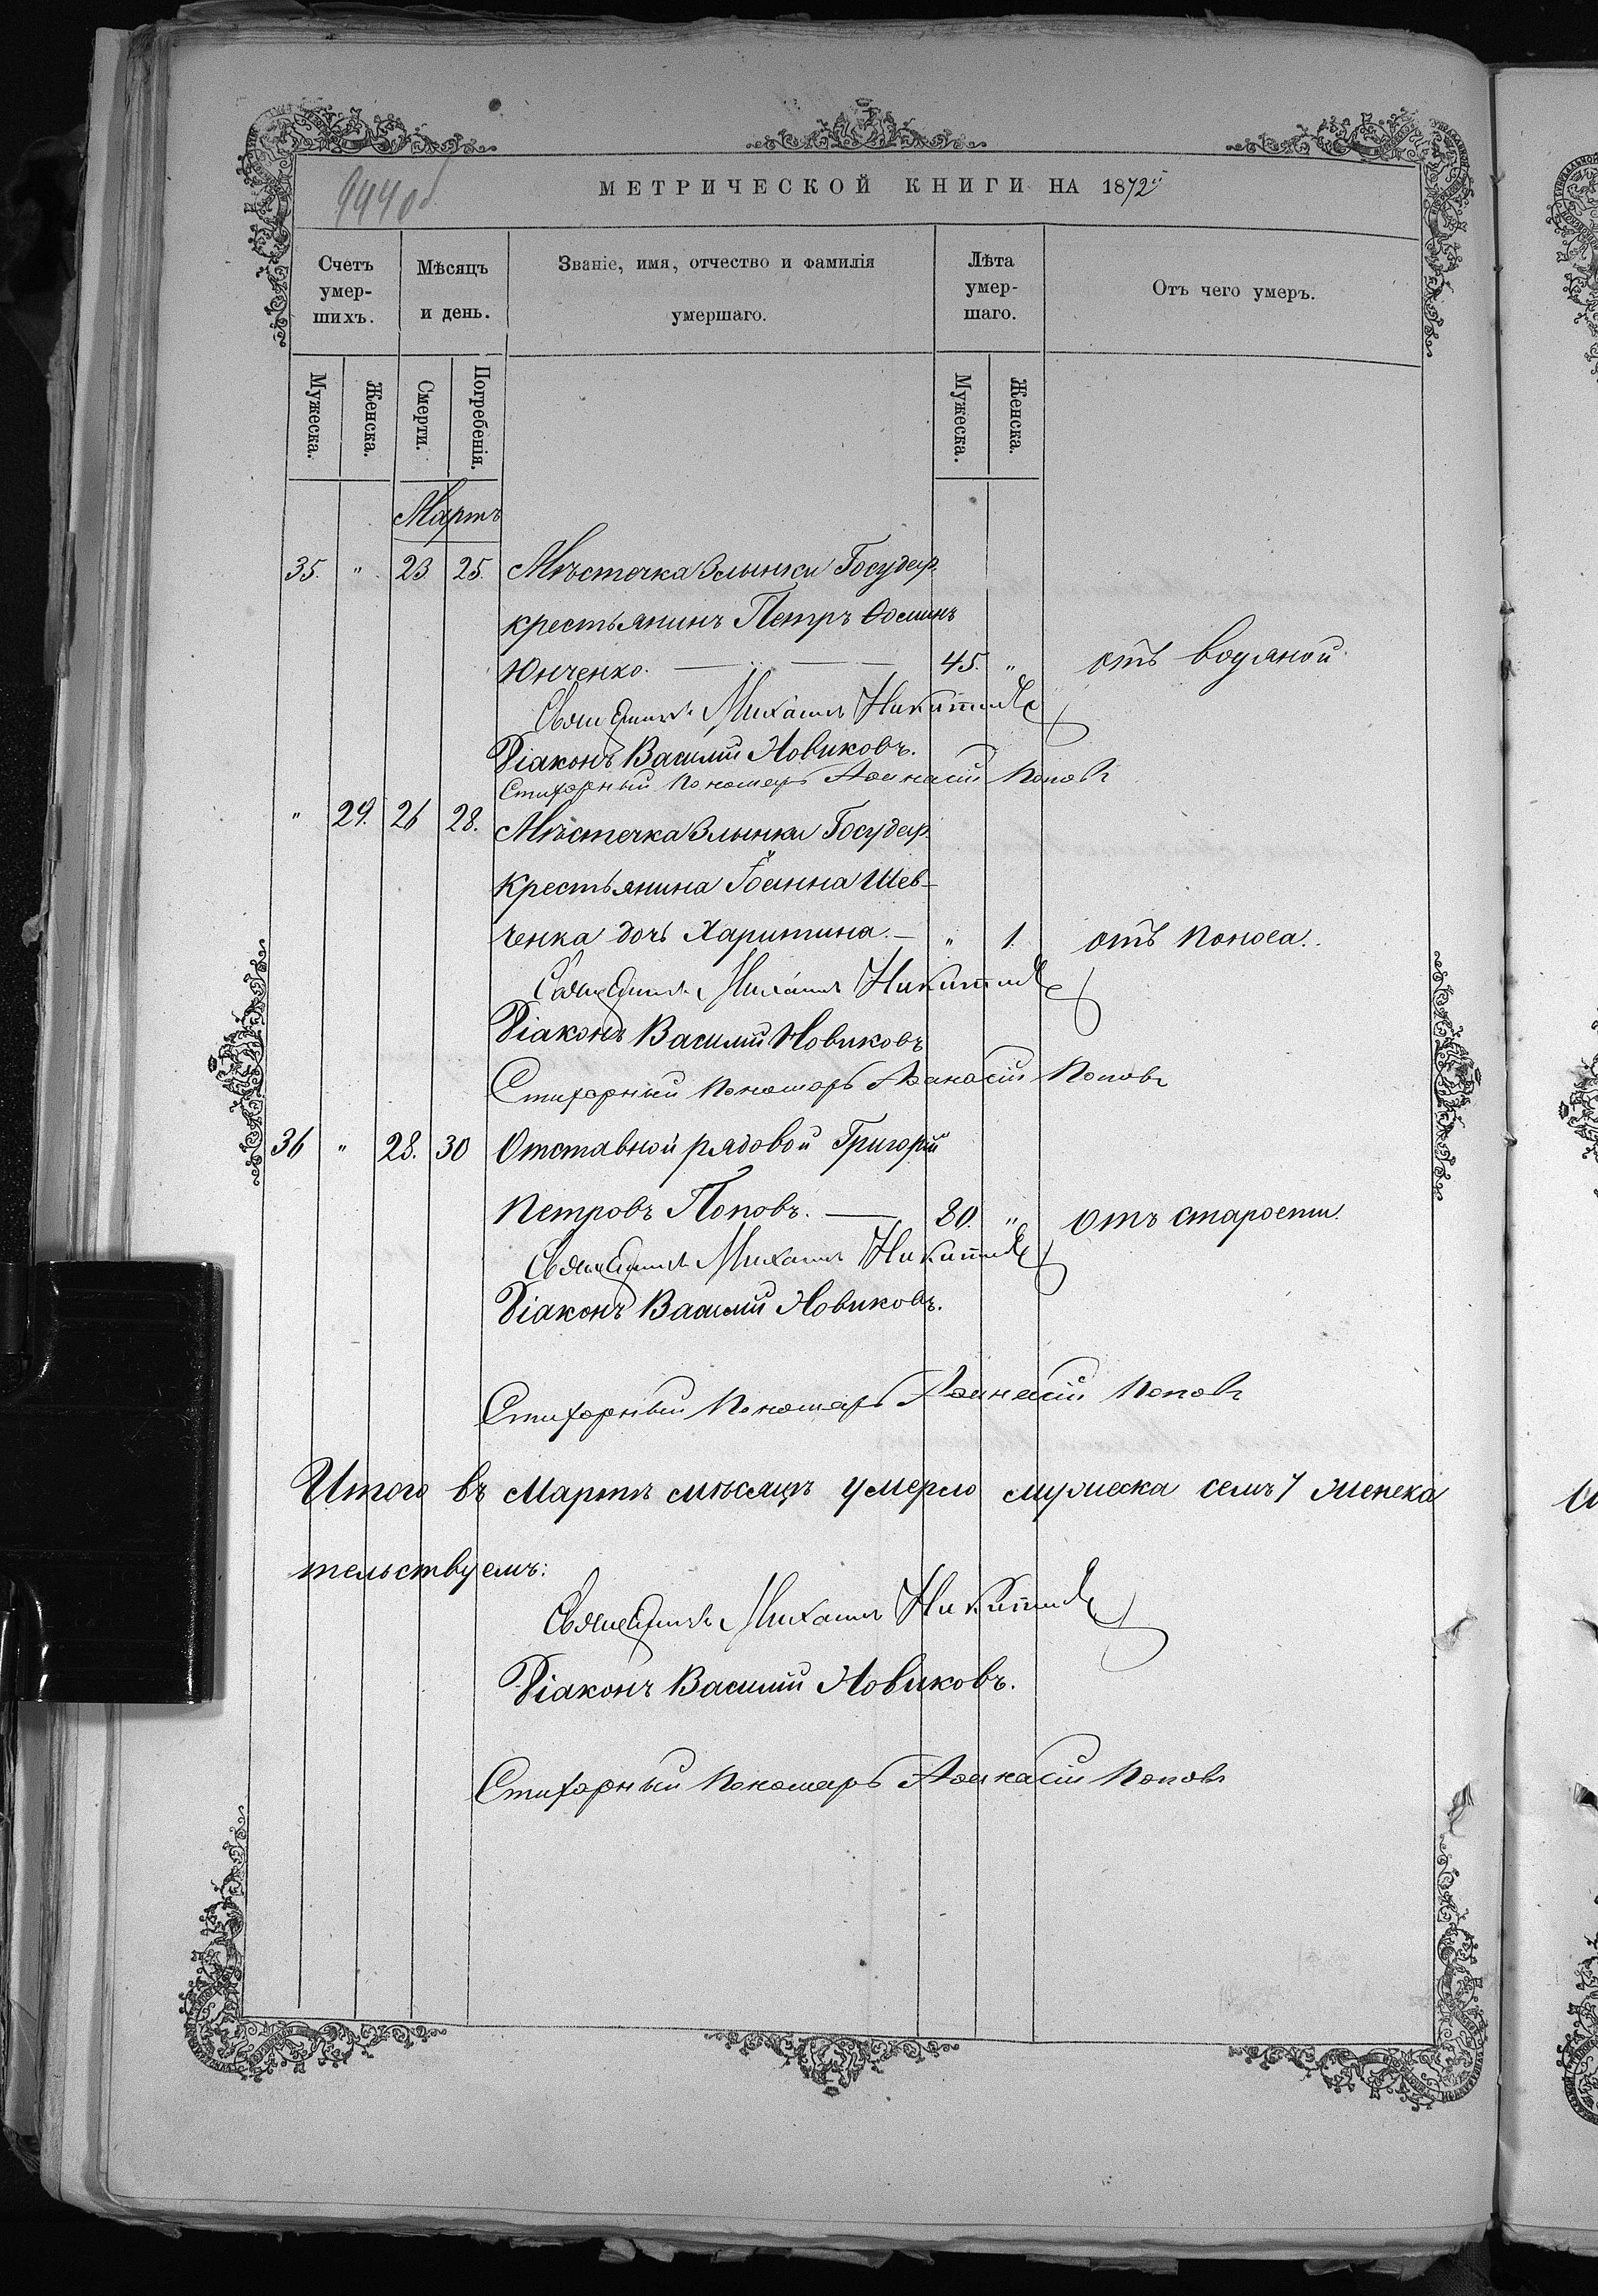 944 об
МЕТРИЧЕСКОЙ КНИГИ НА 1872й
Счетъ умер-шихъ.
Мѣсяцъ и день.
Званіе, имя, отчество и фамилія умершаго.
Лѣта умер-шаго.
Отъ чего умеръ.
Мужеска. Женска. Смерти. Погребенія. Мужеска. Женска.
Мартъ
35. " 23 25. Мѣстечка Злынки Государ.
крестьянинъ Петръ Ѳоминъ
Юнченко. — — 45. " отъ водяной.
Священникъ Михаилъ Никитинъ
Діаконъ Василій Новиковъ.
Стихарный Пономарь Аѳанасій Поповъ
" 29. 26 28. Мѣстечка Злынки Государ.
крестьянина Іоанна Шев-
ченка дочь Харитина. — " 1. отъ поноса.
Священникъ Михаилъ Никитинъ
Діаконъ Василій Новиковъ
Стихарный Пономарь Аѳанасій Поповъ
36 " 28. 30 Отставной рядовой Григорій
Петровъ Поповъ. — 80. " отъ старости.
Священникъ Михаилъ Никитинъ
Діаконъ Василій Новиковъ.
Стихарный Пономарь Аѳанасій Поповъ
Итого въ Мартѣ мѣсяцѣ умерло мужеска семь 7 женска
тельствуемъ:
Священникъ Михаилъ Никитинъ
Діаконъ Василій Новиковъ.
Стихарный Пономарь Аѳанасій Поповъ